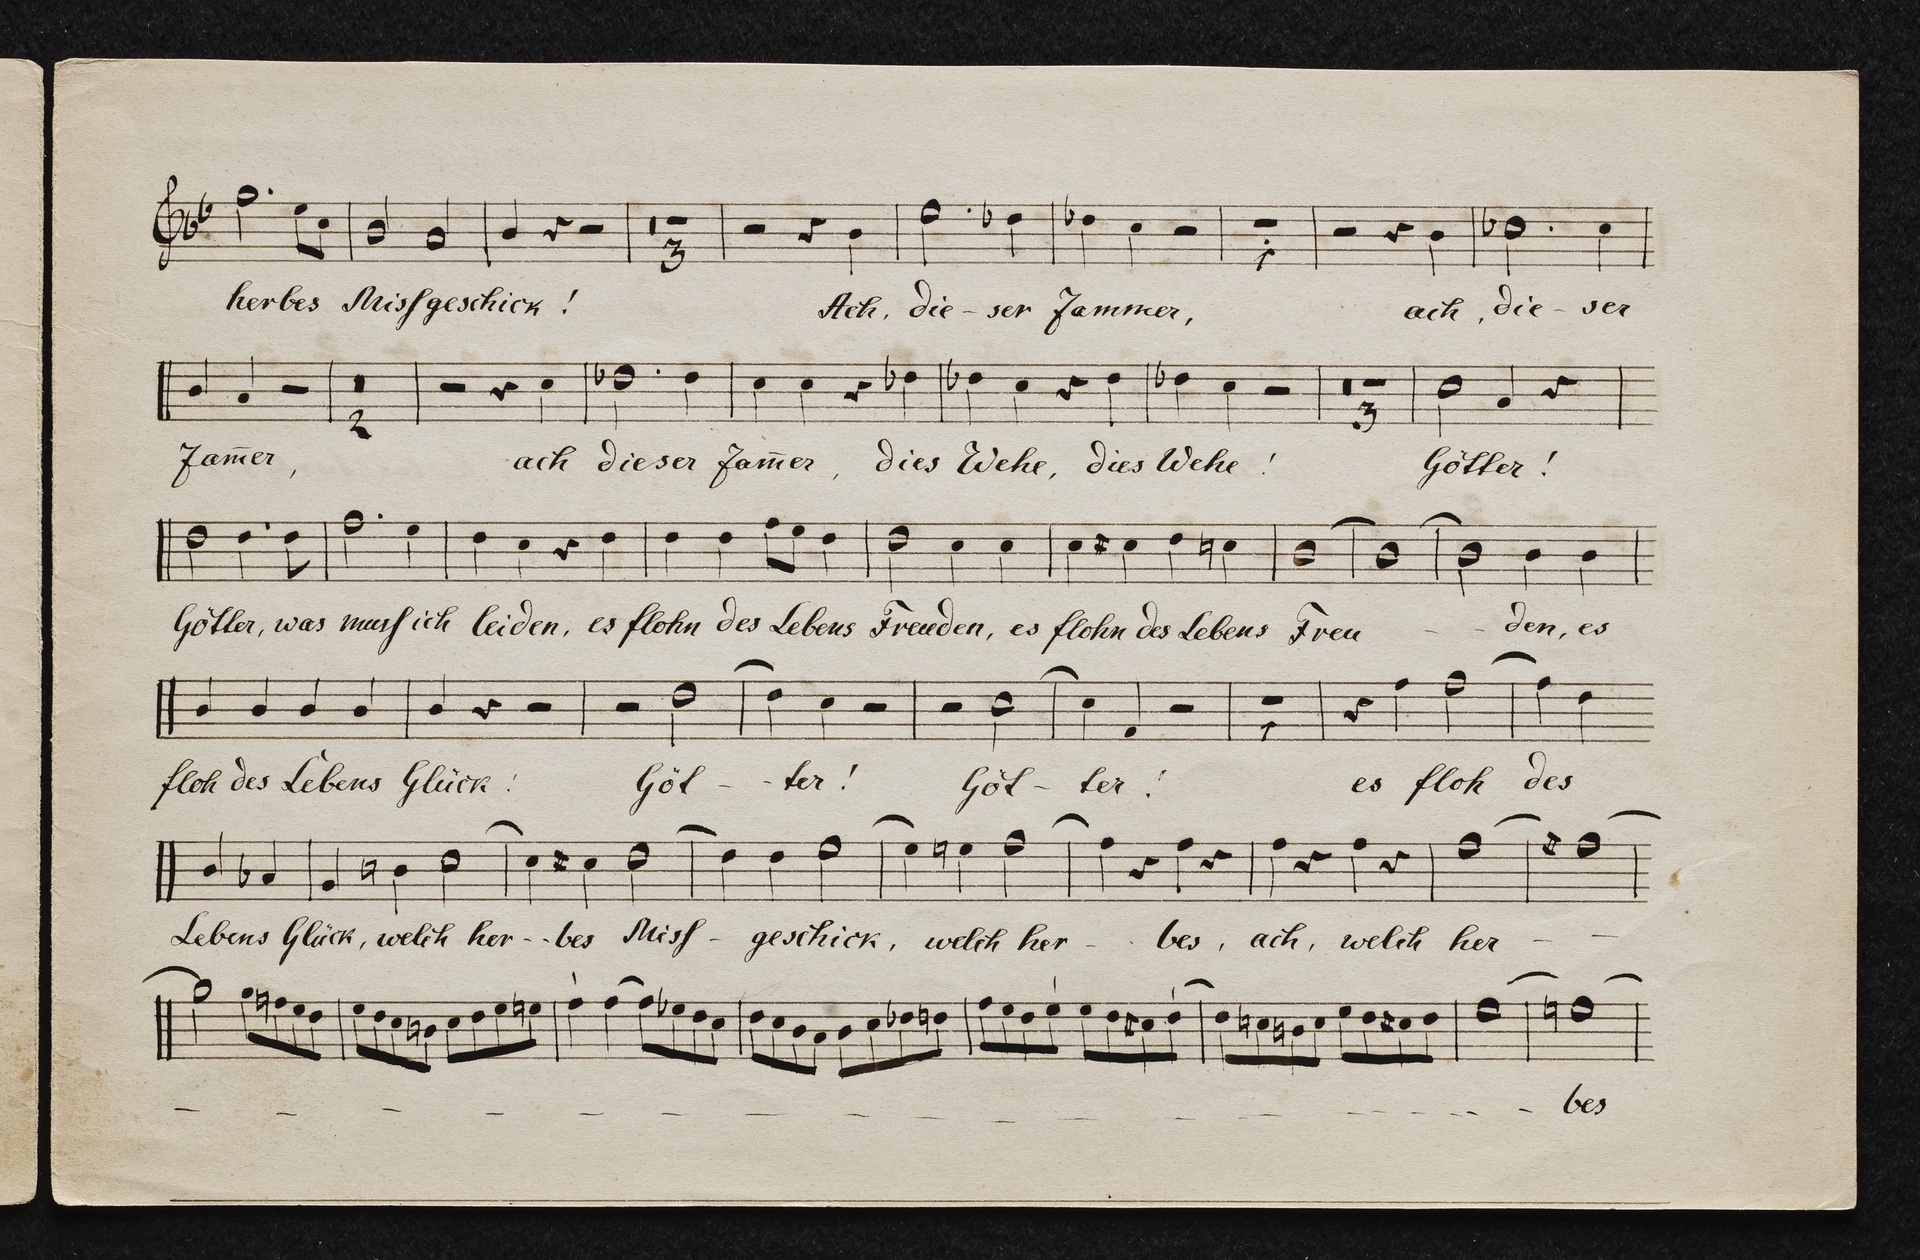 3 1
herbes Missgeschick! Ach, die - ser Jammer, ach, die - ser
2 3
Jam̅er, ach dieser Jam̅er, dies Wehe, dies Wehe! Götter!
Götter, was muss ich leiden, es flohn des Lebens Freuden, es flohn des Lebens Freu - - den, es
1
floh des Lebens Glück! Göt - - ter! Göt - ter! es floh des
Lebens Glück, welch her - - bes Miss - geschick, welch her - - bes, ach, welch her - -
- - - - - - - - - - - - - - - - - - bes